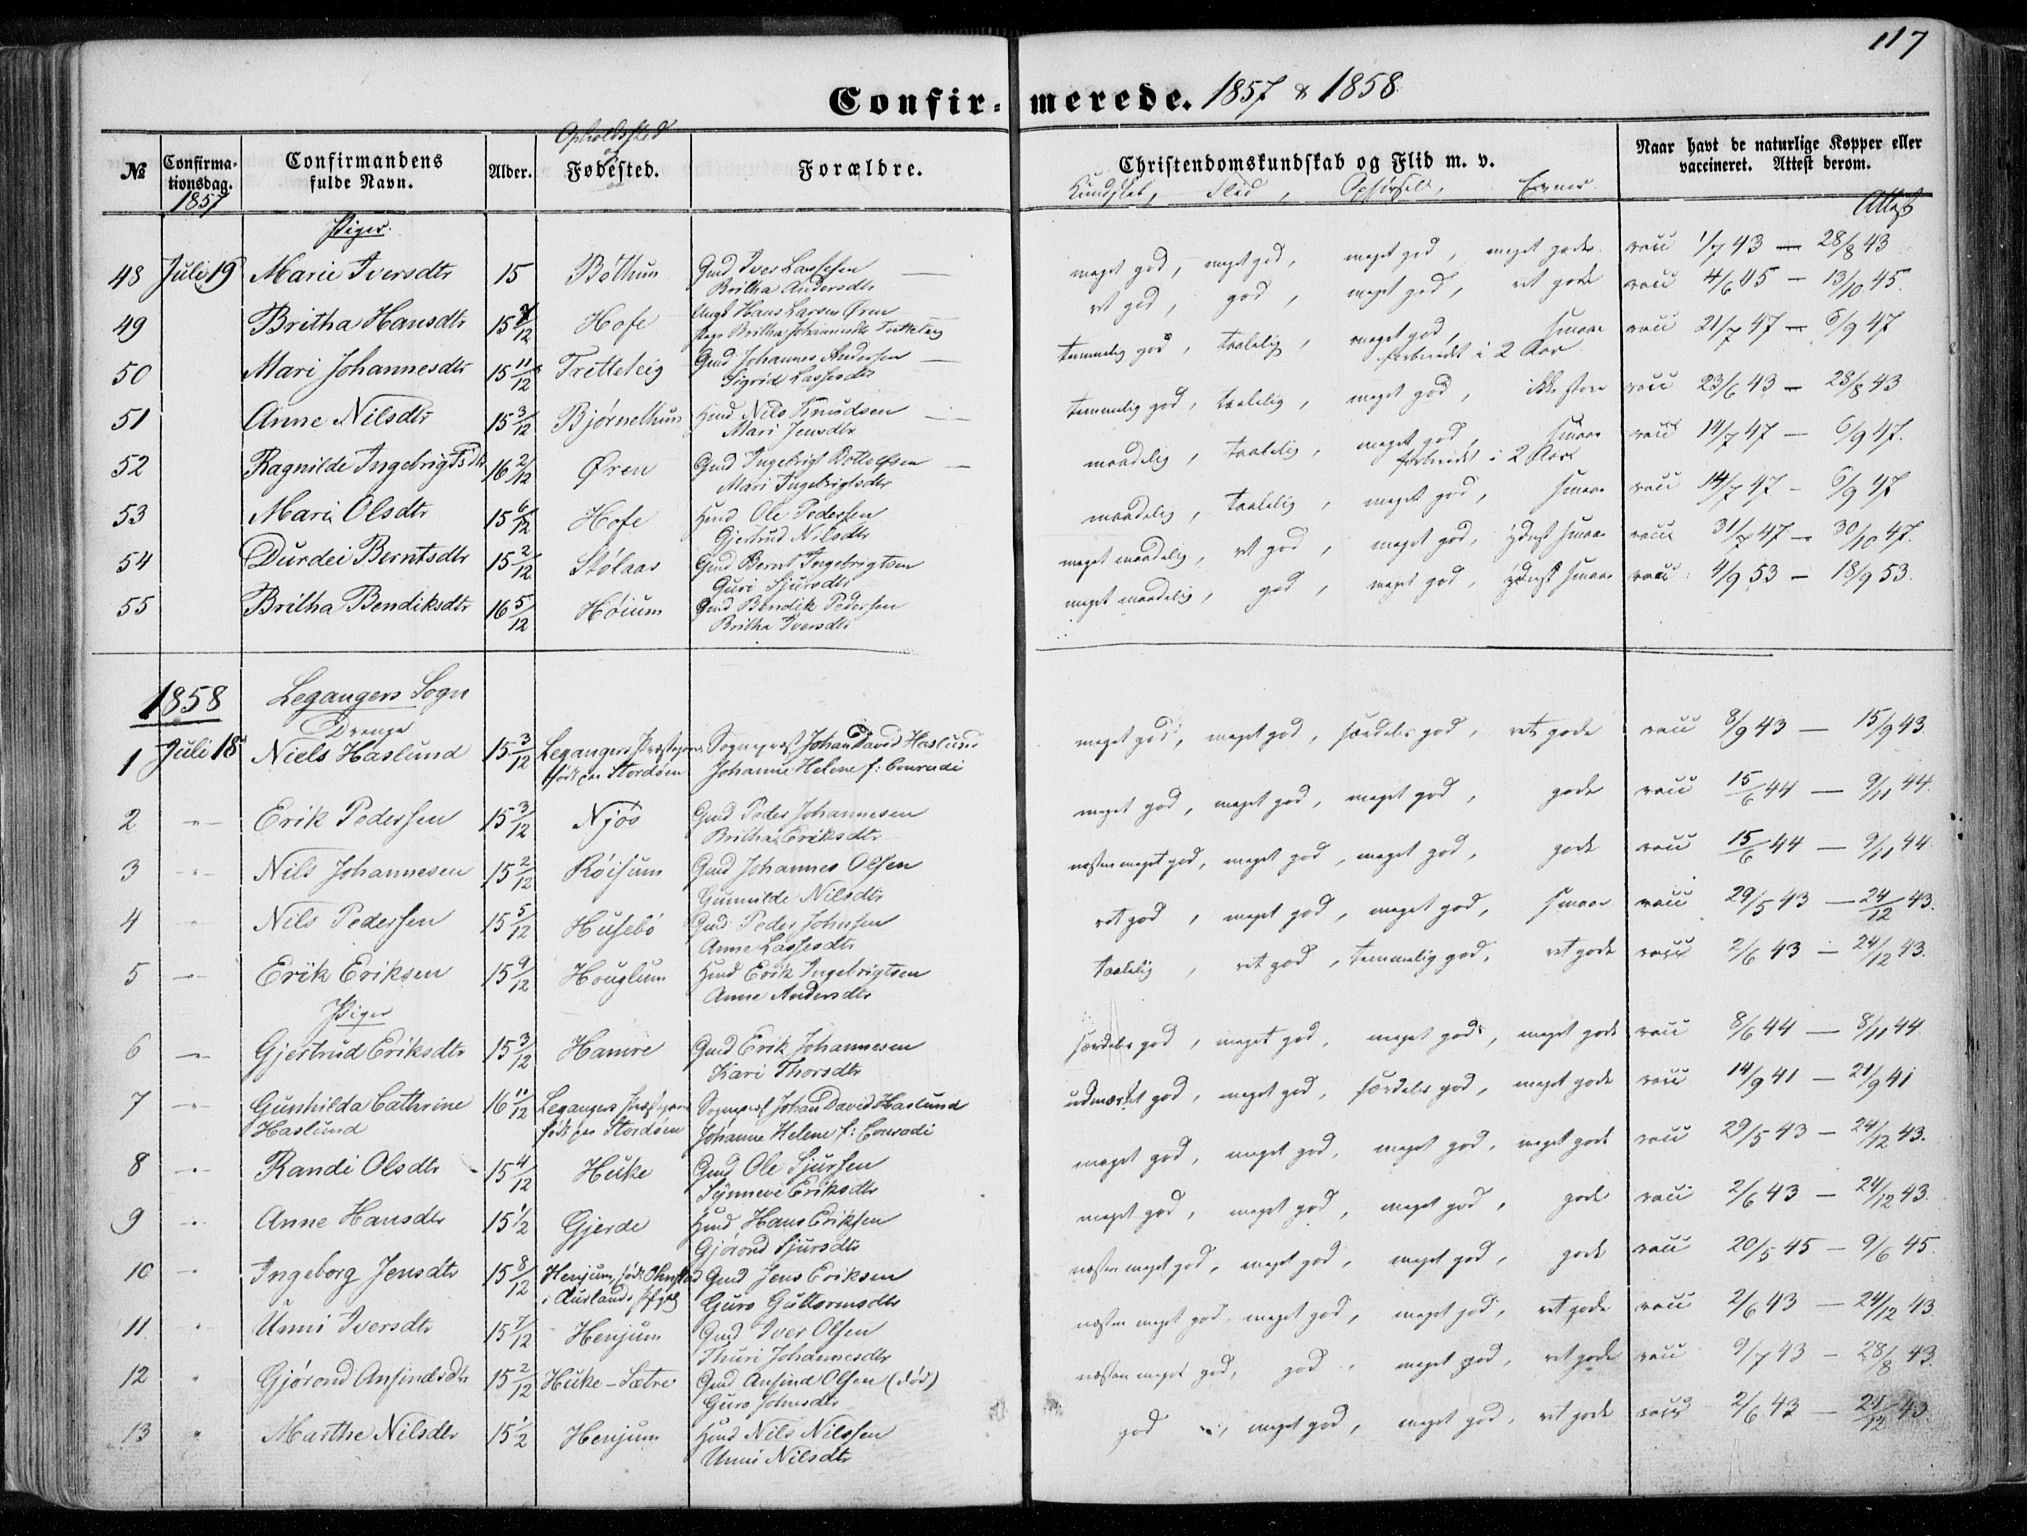 117
Confirmerede. 1857 & 1858
№ Confirmationsdag. Confirmandens fulde Navn. Alder. Opholdssted og Fødested. Forældre. Christendomskundskab og Flid m. v. Naar havt de naturlige Kopper eller vaccineret. Attest derom.
1857 Kundskab, Flid, Opførsel, Evner. Attest
Piger.
48 Juli 19 Marie Iversdtr 15 Bøthun Gmd Iver Lassesen meget god, meget god, meget god, meget gode vacc 1/7 43 — 28/8 43
Britha Andersdtr
49 Britha Hansdtr 15 7/12 Hofe Ungk Hans Larsen Øren ret god, god, meget god, ret gode vacc 4/6 45 - 13/10 45.
Pige Britha Johannesdtr Tretteteig
50 Mari Johannesdtr 15 11/12 Tretteteig Gmd Johannes Andersen temmelig god, taalelig, meget god, smaae vacc 21/7 47 - 6/9 47
Sigrid Lassesdtr forberedet i 2 Aar
51 Anne Nilsdtr 15 3/12 Bjørnethun Hmd Nils Knudsen temmelig god, taalelig, meget god, ikke store vacc 23/6 43 - 28/8 43
Mari Jensdtr
52 Ragnilde Ingebrigtsdtr 16 2/12 Øren Gmd Ingebrigt Botolfsen maadelig, taalelig, meget god, smaae vacc 14/7 47 - 6/9 47.
Mari Ingebrigtsdtr forberedet i 2 Aar
53 Mari Olsdtr 15 6/12 Hofe Hmd Ole Pedersen maadelig, taalelig, meget god, smaae vacc 14/7 47 - 6/9 47
Gjertrud Nilsdtr
54 Durdei Berntsdtr 15 2/12 Stølaas Gmd Bernt Ingebrigtsen meget maadelig, ret god, meget god, ydmst smaae vacc 31/7 47 - 30/10 47.
Guri Sjursdtr
55 Britha Bendiksdtr 16 5/12 Høium Gmd Bendik Pedersen meget maadelig, god, meget god, smaae vacc 4/9 53 - 18/9 53.
Britha Iversdtr
1858 Legangers Sogn
Drenge
1 Juli 18 Niels Haslund 15 3/12 Legangers Præstegaard Sognepræst Johan David Haslund meget god, meget god, særdeles god, ret gode vacc 8/9 43 — 15/9 43.
født paa Stordøen Johanne Helene f: Conradi
2 -"- Erik Pedersen 15 3/12 Njøs Gmd Peder Johannesen meget god, meget god, meget god, gode vacc 15/6 44 — 9/11 44.
Britha Eriksdtr
3 -"- Nils Johannesen 15 2/12 Røisum Gmd Johannes Olsen næsten meget god, meget god, meget god, gode vacc 15/6 44 — 9/11 44.
Gunnilde Nilsdtr
4 " Nils Pedersen 15 5/12 Husebø Gmd Peder Johnsen ret god, meget god, meget god, smaae vacc 29/5 43 — 24/12 43.
Anne Lassesdtr
5 -"- Erik Eriksen 15 9/12 Houglum Hmd Erik Ingebrigtsen taalelig, ret god, temmelig god, ret gode vacc 2/6 43 - 24/12 43.
Anne Andersdtr
Piger
6 -"- Gjertrud Eriksdtr 15 3/12 Hamre Gmd Erik Johannesen særdeles god, meget god, meget god, meget gode vacc 8/6 44 — 8/11 44.
Kari Thorsdtr
7 -"- Gunhilda Cathrine 16 11/12 Legangers Præstegaard Sognepræst Johan David Haslund udmærket god, meget god, særdeles god, meget gode vacc 14/9 41 — 21/9 41
Haslund født paa Stordøen Johanne Helene f: Conradi
8 -"- Randi Olsdtr 15 4/12 Huke Gmd Ole Sjursen meget god, meget god, meget god, meget gode vacc 29/5 43 - 24/12 43.
Synnevi Eriksdtr
9 " Anne Hansdtr 15 1/2 Gjerde Hmd Hans Eriksen meget god, meget god, meget god, gode vacc 2/6 43 - 24/12 43.
Gjørond Sjursdtr
10 " Ingeborg Jensdtr 15 8/12 Henjum, født Ohnstad Gmd Jens Eriksen næsten meget god, meget god, meget god, gode vacc 20/5 45 - 9/6 45.
i Aurlands Guro Guttormsdtr
11. " Unni Iversdtr 15 7/12 Henjum Gmd Iver Olsen næsten meget god, meget god, meget god, ret gode vacc 2/6 43 — 24/12 43
Thuri Johannesdtr
12 " Gjørond Ansindsdtr 15 2/12 Huke-Sætre Gmd Ansind Olsen (død) næsten meget god, god, meget god, ret gode vacc 9/7 43 - 28/8 43.
Guro Johnsdtr
13 " Marthe Nilsdtr 15 1/2 Henjum Hmd Nils Nilssen god, meget god, meget god, ret gode vacc 2/6 43 — 24/12 43
Unni Nilsdtr